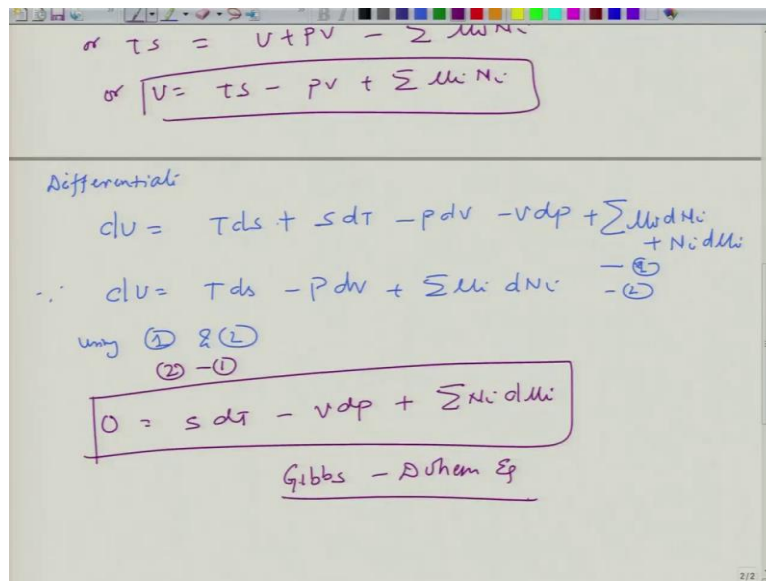 or TS = U + PV - Σ μi Ni
or U = TS - PV + Σ μi Ni
Differentiate
dU = Tds + SdT - PdV - Vdp + Σ μi dNi
+ Ni dμi
- ①
∴ dU = Tds - Pdv + Σ μi dNi - ②
Using ① & ②
② - ①
0 = SdT - Vdp + Σ Ni dμi
Gibbs - Duhem Eq
2/2